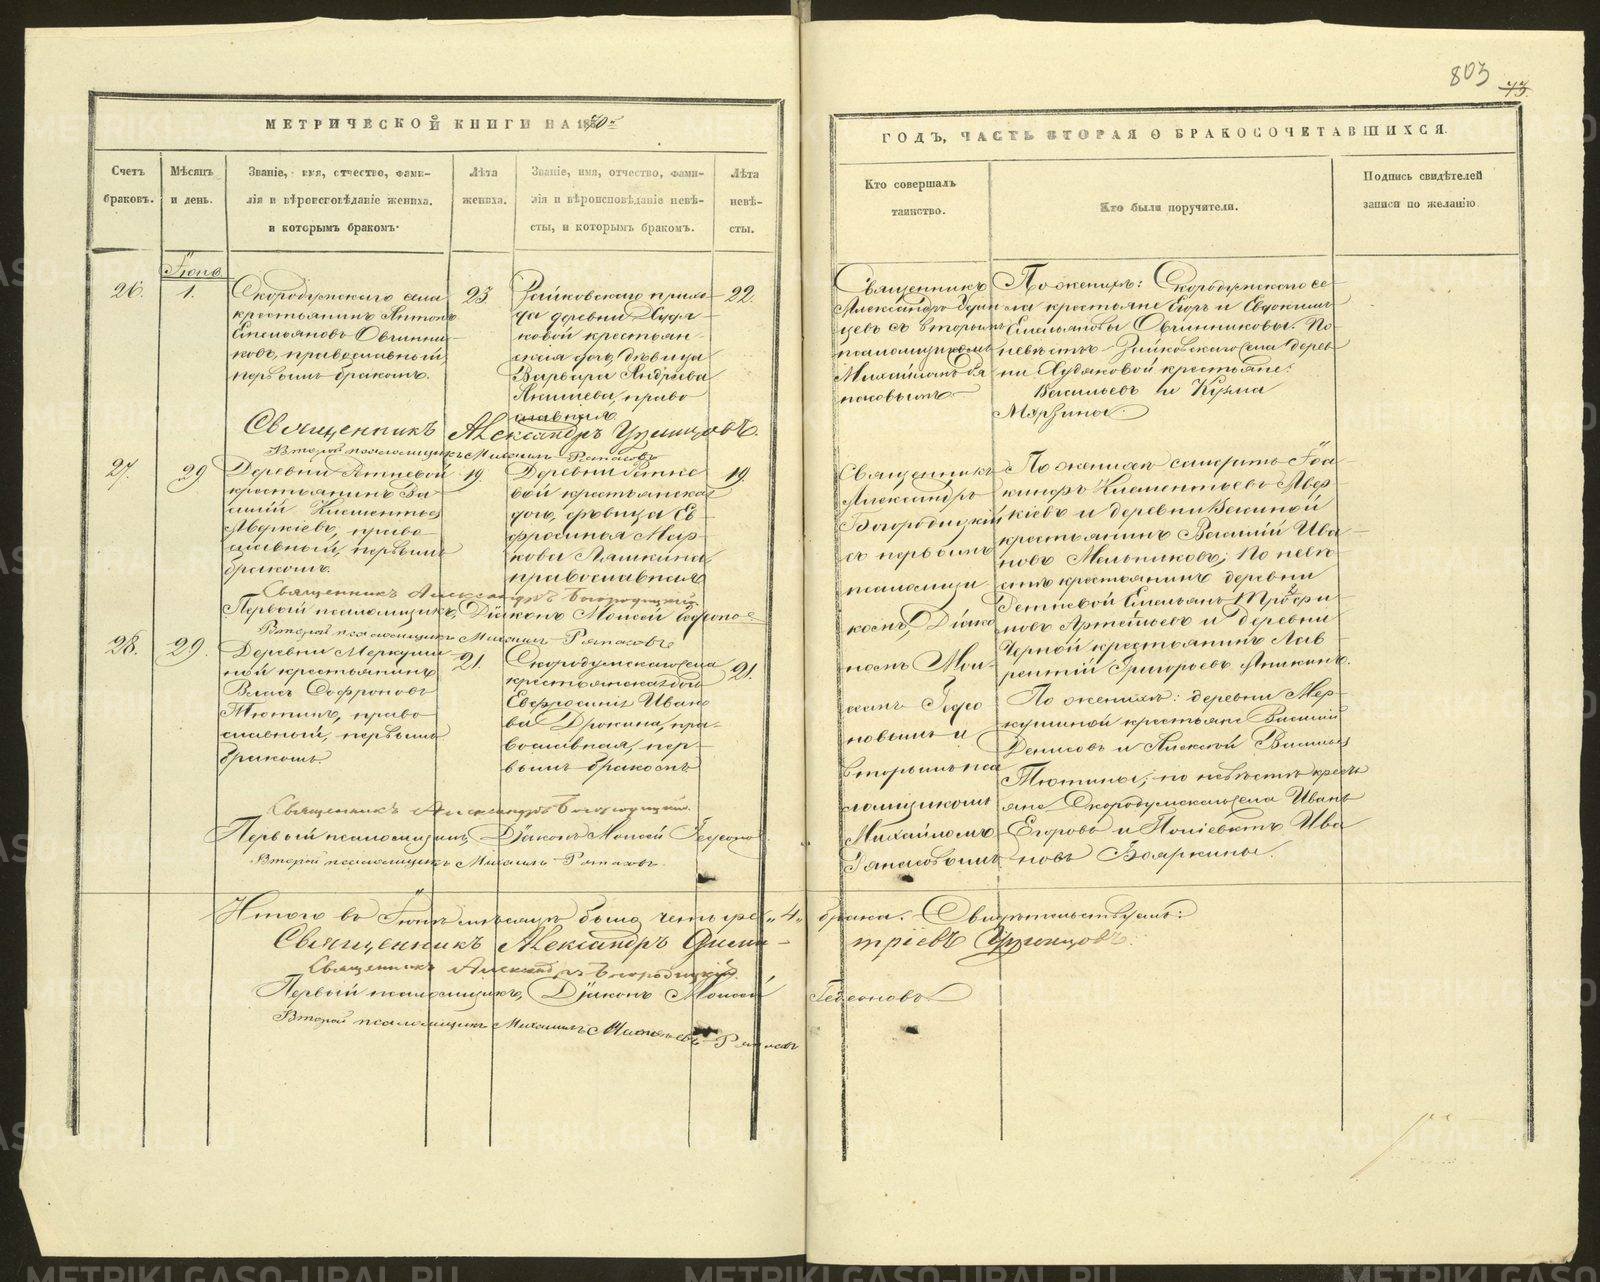 803
73.
МЕТРИЧЕСКОЙ КНИГИ НА 18
ГОДЪ, ЧАСТЬ ВТОРАЯ О БРАКОСОЧЕТАВШИХСЯ.
Счетъ браковъ.
Мѣсяцъ и день.
Званіе, имя, отчество, фами-
лія и вѣроисповѣданіе жениха.
и которымъ бракомъ.
Лѣта жениха.
Званіе, имя, отчество, фами-
лія и вѣроисповѣданіе невѣ-
сты, и которымъ бракомъ.
Лѣта невѣ-
сты.
Кто совершалъ
таинство.
Кто были поручители.
Подпись свидѣтелей
записи по желанію
26.
1.
Скородумскаго села
крестьянинъ Антонъ
Емельяновъ Овчинни-
ковъ, православный,
первымъ бракомъ.
23.
Зайковскаго прихо-
да деревни Худя-
ковой крестьян-
ская дочь, дѣвица
Варвара Андреева
право
славная
22.
Священникъ
Александръ
цевъ съ вторымъ
псаломщикомъ
Михаиломъ
По женихѣ: Скородумскаго се-
ла крестьяне Егоръ и Евдокимъ
Емельяновы Овчинниковы. По
невѣстѣ Зайковскаго села дерев-
ни Худяковой крестьяне:
Васильевъ и Кузма
Священникъ Александръ
Второй псаломщикъ Михаилъ
27.
29
крестьянинъ Ва-
силій Климентьев
Меркіевъ, право-
славный, первымъ
бракомъ.
19
вой крестьянская
дочь, дѣвица Ев-
фросинья Мар-
кова Ляшкина,
православная
19.
Священникъ
Александръ
Богородицкій
съ первымъ
псаломщи-
комъ, Діако-
номъ Мои-
сеемъ Гедео
новымъ и
вторымъ пса
ломщикомъ
Михаиломъ
кинфъ Климентьевъ Мер-
кіевъ и деревни
крестьянинъ Василій Ива-
новъ Мельниковъ; По невѣ-
стѣ крестьянинъ деревни
Емельянъ Трофи-
новъ Артемьевъ и деревни
Черной крестьянинъ Лав-
рентій Григорьевъ Аникинъ.
Священникъ Александръ Богородицкій
Первый псаломщикъ, Діаконъ Моисей Гедеоно
Второй псаломщикъ Михаилъ
28.
29.
Деревни Меркуши-
ной крестьянинъ
Власъ Софроновъ
Тютинъ, право-
славный, первымъ
бракомъ.
21.
Скородумскаго села
крестьянская дочь
Евфросинія Ивано-
ва Дюкина, пра-
вославная, пер-
вымъ бракомъ
21.
По женихѣ: деревни Мер-
кушиной крестьяне Василій
Денисовъ и Алексѣй Васильев
Тютины; по невѣстѣ кресть
яне Скородумскаго села Иванъ
Егоровъ и Поліевктъ Ива
новъ Бояркины.
Священникъ Александръ Богородицкій.
Первый псаломщикъ, Діаконъ Моисей Гедеоно
Второй псаломщикъ Михаилъ
Итого въ Іюнѣ мѣсяцѣ было четыре „4„ брака. Свидѣтельствуемъ:
Священникъ Александръ Дими-
тріевъ
Священникъ Александръ Богородицкій
Первый псаломщикъ, Діаконъ Моисей Гедеоновъ
Второй псаломщикъ Михаилъ
METRIKI.GASO-URAL.RU